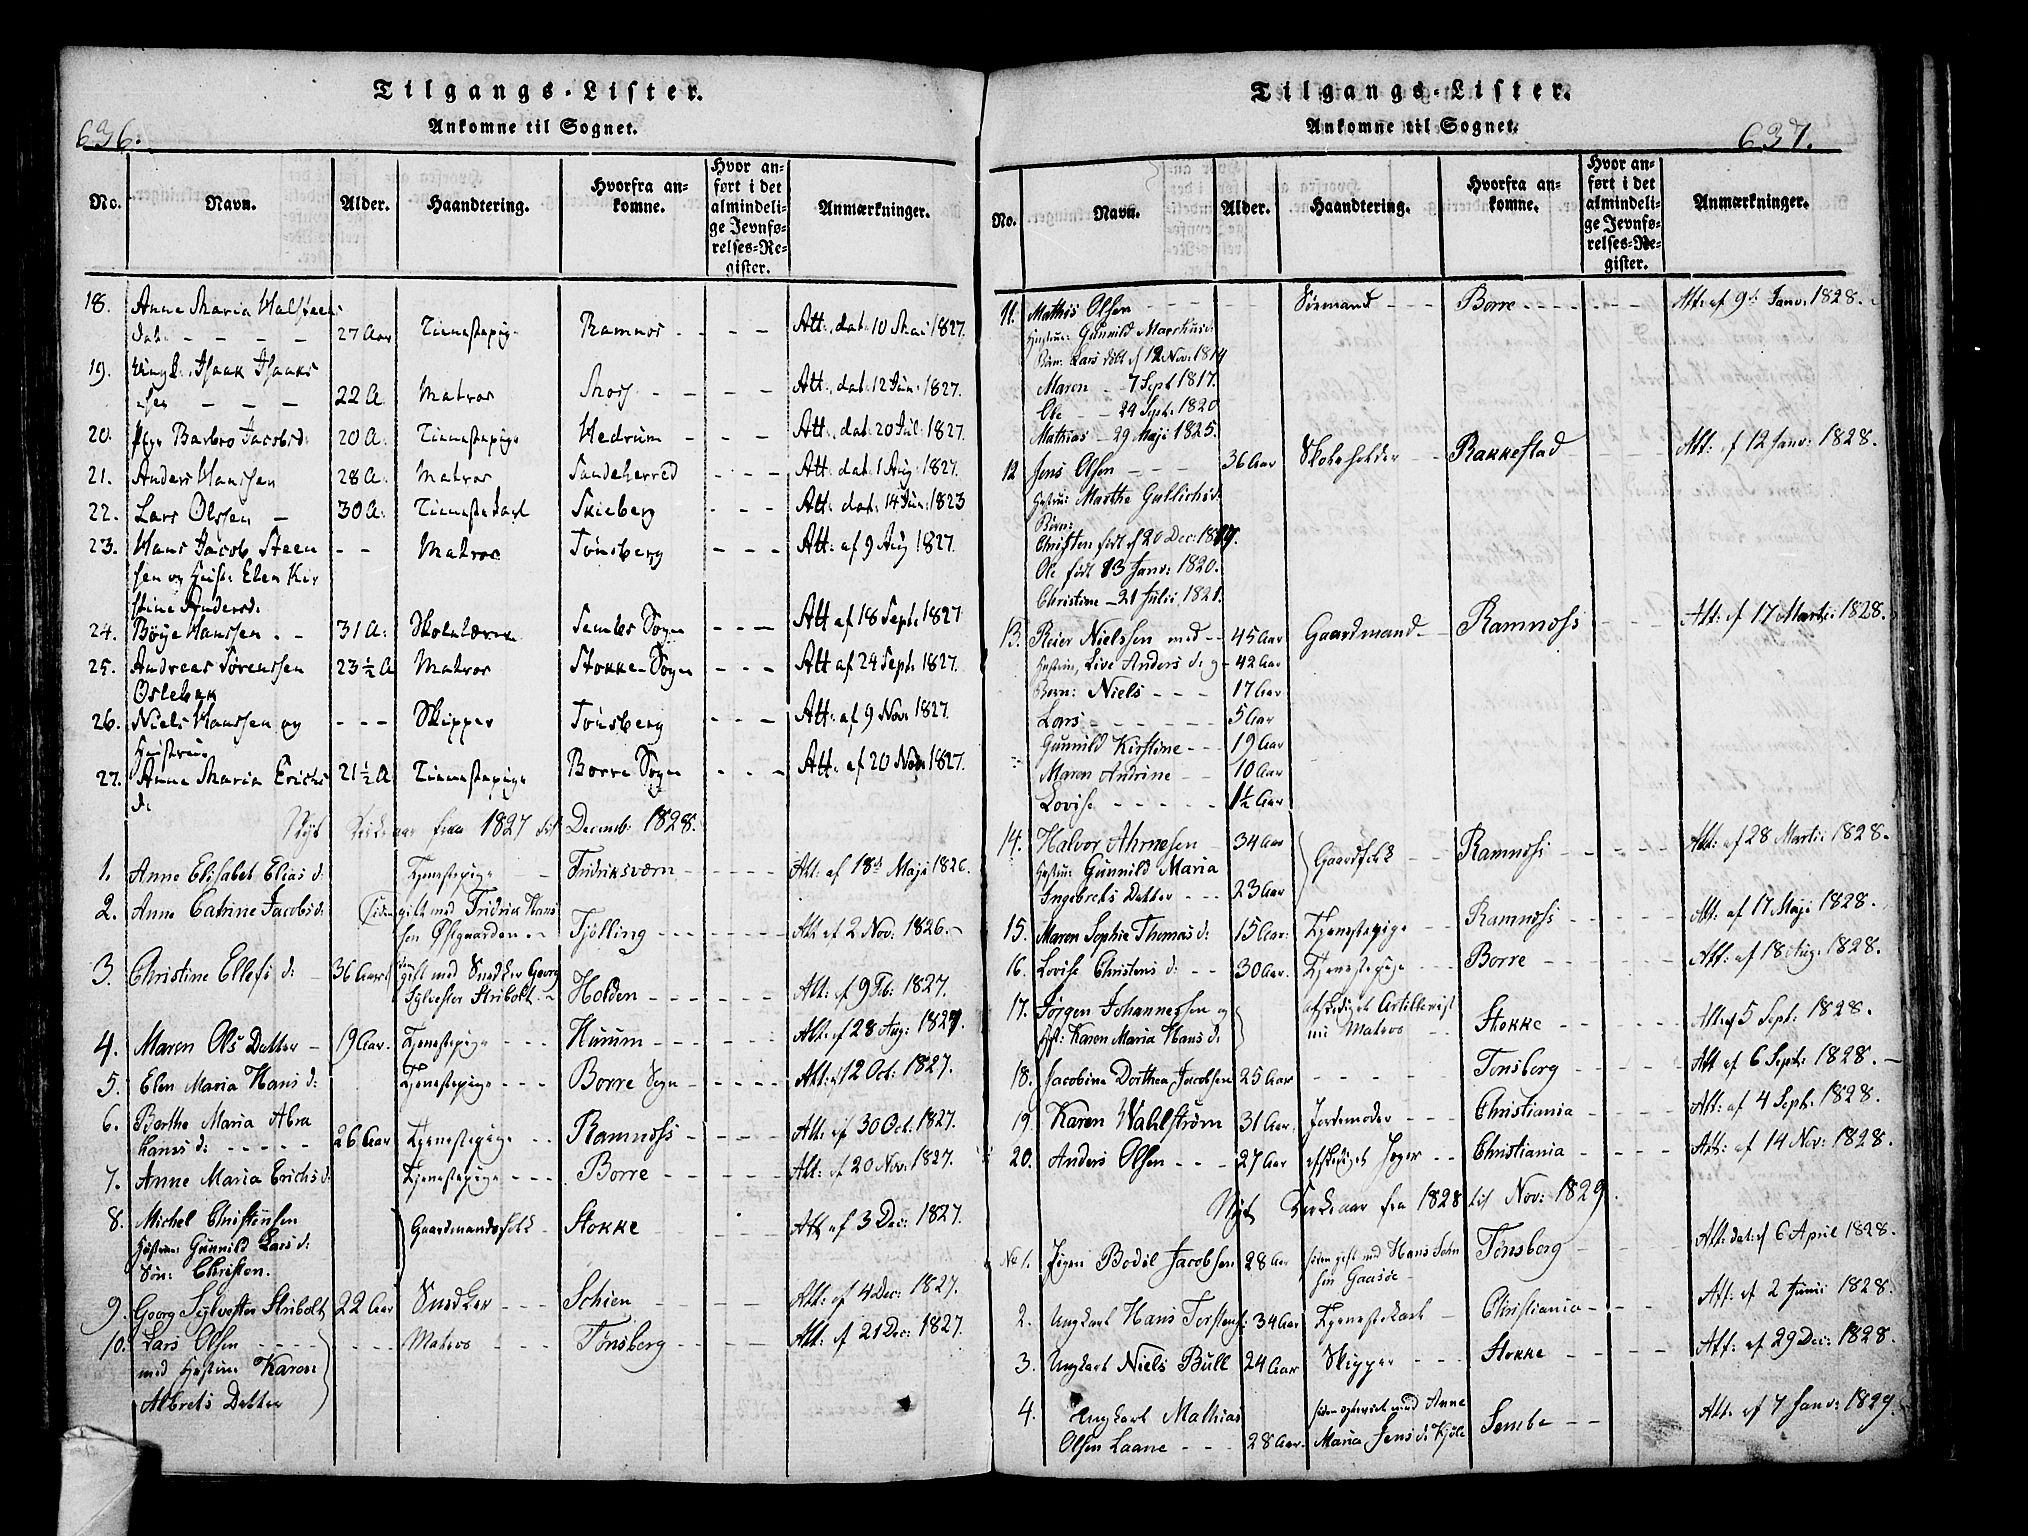 636.
Tilgangs-Lister.
Ankomne til Sognet.
No. Navn. Alder. Haandtering. Hvorfra ankomne. Hvor anført i det almindelige Jevnførelses-Register. Anmærkninger.
18. Anne Maria
27 Aar Tienestepige Ramnos - - - Att: dat: 10 Mai 1827.
19. Ungk. Isaak Isaak
sen - - - 22 A. Matros Moss - - - Att: dat: 12 Jun: 1827.
20. Pige Barbro Jacobsd: 20 A. Tienestepige Hedrum - - - Att: dat: 20 Jul: 1827.
21. Anders Hanssen 28 A. Matros Sandeherred - - - Att: dat: 1 Aug: 1827.
22. Lars Olssen - 30 A: Tienestekarl Skieberg - - - Att: dat: 14 Jun: 1823
23. Hans Jacob Steen - - Matros Tönsberg - - - Att: af 9 Aug 1827.
sen og Hust: Elen Kir
stine Andersd:
24. Böye Hanssen - - 31 A: Skolelærer Sembs Sogn - - - Att af 18 Sept: 1827
25. Andreas Sörenssen 23 1/2 A Matros Stokke Sogn - - - Att af 24 Sept: 1827.
Oslebak
26. Niels Hanssen og - - - Skipper Tönsberg - - - Att: af 9 Nov: 1827.
Hustrue
27. Anne Maria Erichs 21 1/2 A Tienestepige Borre Sogn - - - Att: af 20 Nov: 1827.
d:
Nyt Kirkeaar fra 1827 til Decemb: 1828.
1. Anne Elisabet Elias d: Tjenestepige Fridriksværn - - - Att: af 18d Maji 1826.
2. Anne Catrine Jacobsd: Siden gift med Fridrik Hans
sen Østgaarden - Tjölling - - - Att: af 2 Nov: 1826.
3. Christine Ellefs d: - 36 Aar gift med Snedker Georg
Sylvester Stribolt - Holden - - - Att: af 9 Feb: 1827.
4. Maren Ols Datter - 19 Aar. Tjenestepige - - - Hurum - - - Att: af 28 Aug: 1827.
5. Elen Maria Hans d: Tjenestepige - - - Borre Sogn - - - Att: af 12 Oct: 1827.
6. Berthe Maria Abra
hams d: - - - 26 Aar Tjenestepige - - Ramnoss - - - Att: af 30 Oct. 1827.
7. Anne Maria Erichs d: Tjenestepige - - - Borre - - - Att: af 20 Nov: 1827.
8. Michel Christensen Gaardmandsfolk - Stokke Att af 3 Dec: 1827.
Hustrue: Gunnild Lars d:
Søn: Christen.
9. Georg Sylvester Stribolt 22 Aar Snedker - - - Schien - - Att: af 4 Dec: 1827.
10. Lars Olsen - - - Matros - - - Tønsberg - - - Att: af 21 Dec: 1827.
med Hustrue Karen
Albrets Datter
Tilgangs-Lister.
Ankomne til Sognet.
637.
No. Navn. Alder. Haandtering. Hvorfra ankomne. Hvor anført i det almindelige Jevnførelses-Register. Anmærkninger.
11. Mathis Olsen - - - Sømand - - - Borre - - - Att: af 9d Janv: 1828.
Hustrue: Gunnild Marckus d:
Börn: Lars født d 12 Nov: 1814
Maren - - 7 Sept 1817.
Ole - - 24 Sept: 1820
Mathias - 29 Maji 1825.
12. Jens Olsen - - - 36 Aar Skoleholder - - Rakkestad - - - Att: af 12 Janv: 1828.
Hustrue: Marthe Gullichs d:
Börn:
Christen født d 20 Dec: 1819.
Ole født 13 Janv: 1820.
Christine - 21 Julii 1821.
13. Reier Nielssen med - 45 Aar Gaardmand - Ramnoss - - - Att: af 17 Martii 1828.
Hustrue, Live Anders d: og - 42 Aar
Børn: Niels - - - 17 Aar
Lars - - - 5 Aar
Gunnild Kirstine - - 19 Aar
Maren Andrine - - 10 Aar
Lovise - - - 1 1/2 Aar
14. Halvor Ahrnesen - 34 Aar Gaardfolk - - Ramnoss - - - Att: af 28 Martii 1828.
Hustrue: Gunnild Maria
Ingebrets Datter - - - 23 Aar
15. Maren Sophie Thomas d: 15 Aar: Tjenestepige - - Ramnoss - - - Att: af 17 Maji 1828.
16. Lovise Christens d: - - 30 Aar. Tjenestepige - - - Borre - - - Att: af 18 Aug. 1828.
17. Jørgen Johannessen og afskediget Artillerist
Hst: Karen Maria Hans d: nu Matros - - Stokke - - - Att: af 5 Sept: 1828.
18. Jacobine Dorthea Jacobsen 25 Aar - - - Tønsberg - - - Att af 6 Sept: 1828.
19. Karen Wahlstrøm 31 Aar. Jordemoder - - - Christiania - - - Att: af 4 Sept: 1828.
20. Anders Olsen - - - 27 Aar afskediget Jæger - - Christiania - - - Att: af 14 Nov: 1828.
Nyt Kirkeaar fra 1828 til Nov: 1829.
No 1. Pigen Bodil Jacobsen 28 Aar siden gift med Hans John
sen Gaasöe - Tønsberg - - - Att: dat: d 6 April 1828.
2. Ungkarl Hans Torstens: 34 Aar Tjenestekarl - Christiania - - - Att: af 2 Junii 1828.
3. Ungkarl Niels Bull 24 Aar Skipper - - - Stokke - - - Att: af 29 Dec: 1828.
4. Ungkarl Mathias siden med Anne
Olsen Laane - - - 28 Aar. Maria Jens d: Kjøle Sembe - - Att: af 7 Janv: 1829.